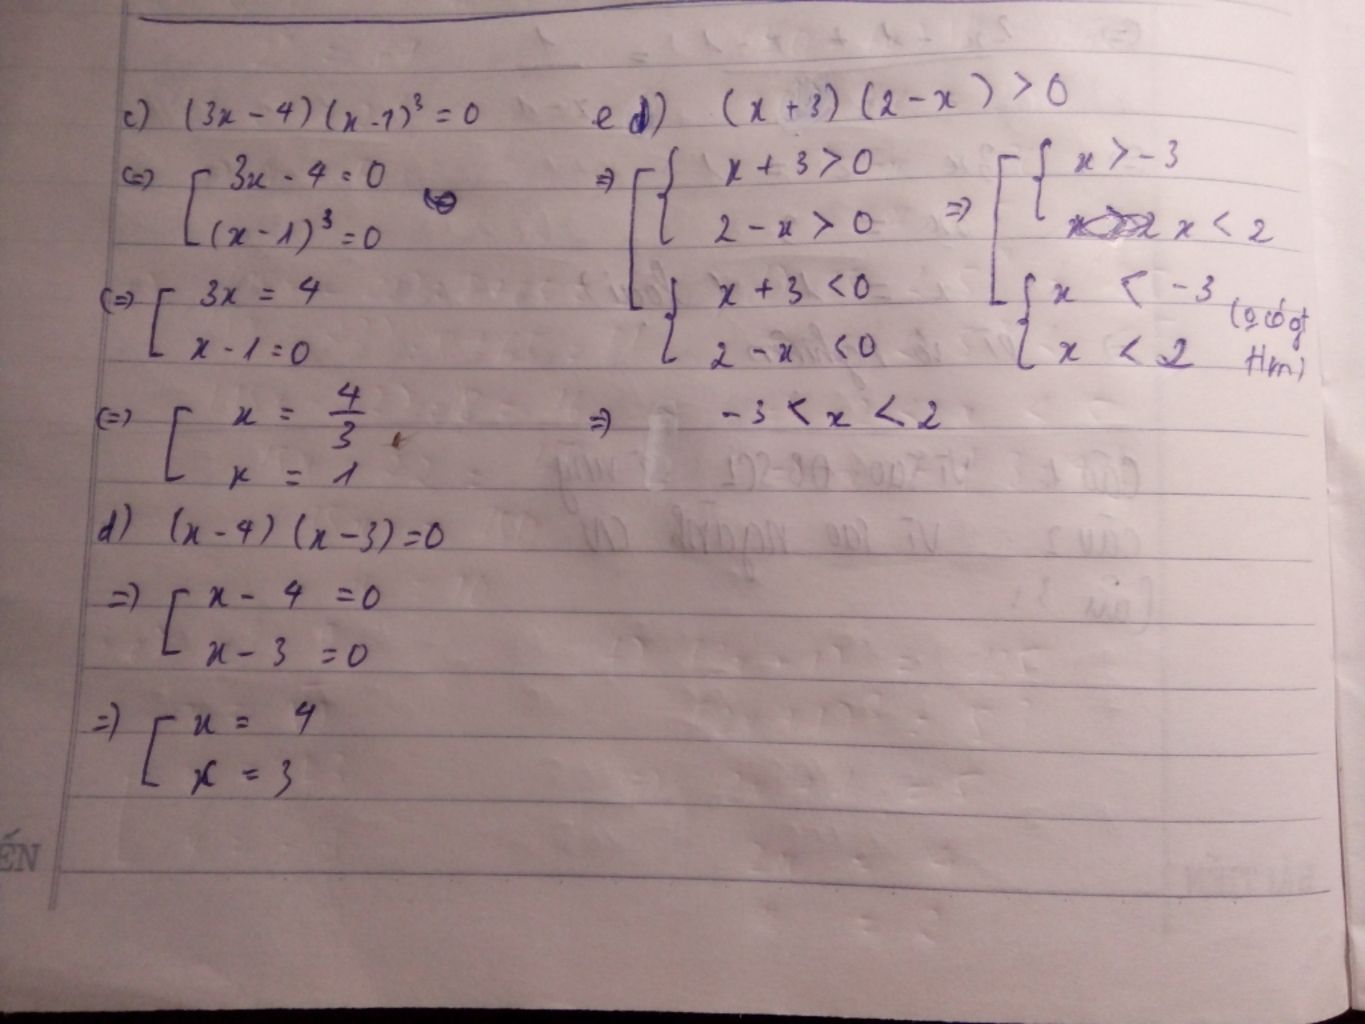 c) (3x - 4)(x - 1)³ = 0
(=) [ 3x - 4 = 0
(x - 1)³ = 0
(=) [ 3x = 4
x - 1 = 0
(=) [ x = 4/3
x = 1
d) (x - 4) (x - 3) = 0
=) [ x - 4 = 0
x - 3 = 0
=) [ x = 4
x = 3
e d) (x + 3) (2 - x) > 0
=) [ { x + 3 > 0
2 - x > 0
{ x + 3 < 0
2 - x < 0
=) [ { x > -3
x < 2
{ x < -3
x < 2
=) -3 < x < 2
ẾN